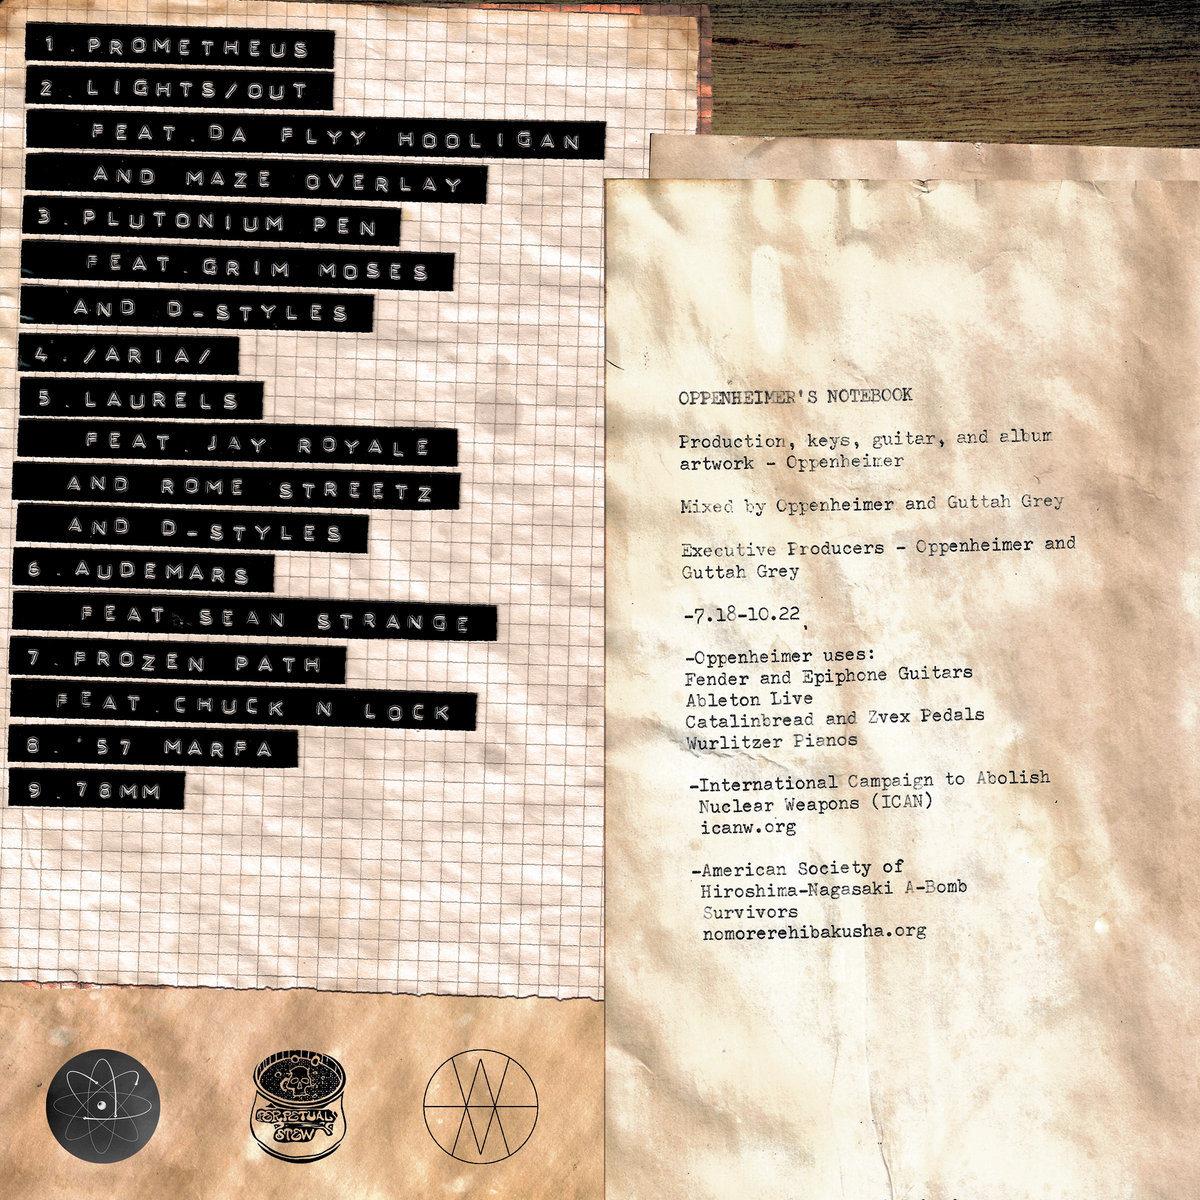 1.PROMETHEUS
2.LIGHTS/OUT
FEAT.DA FLYY HOOLIGAN
AND MAZE OVERLAY
3.PLUTONIUM PEN
FEAT.GRIM MOSES
AND D-STYLES
4./ARIA/
5.LAURELS
FEAT.JAY ROYALE
AND ROME STREETZ
AND D-STYLES
6.AUDEMARS
FEAT.SEAN STRANGE
7.FROZEN PATH
FEAT.CHUCK N LOCK
8.'57 MARFA
9.78MM
PERPETUAL
STEW
OPPENHEIMER'S NOTEBOOK
Production, keys, guitar, and album
artwork - Oppenheimer
Mixed by Oppenheimer and Guttah Grey
Executive Producers - Oppenheimer and
Guttah Grey
-7.18-10.22
-Oppenheimer uses:
Fender and Epiphone Guitars
Ableton Live
Catalinbread and Zvex Pedals
Wurlitzer Pianos
-International Campaign to Abolish
Nuclear Weapons (ICAN)
icanw.org
-American Society of
Hiroshima-Nagasaki A-Bomb
Survivors
nomorerehibakusha.org